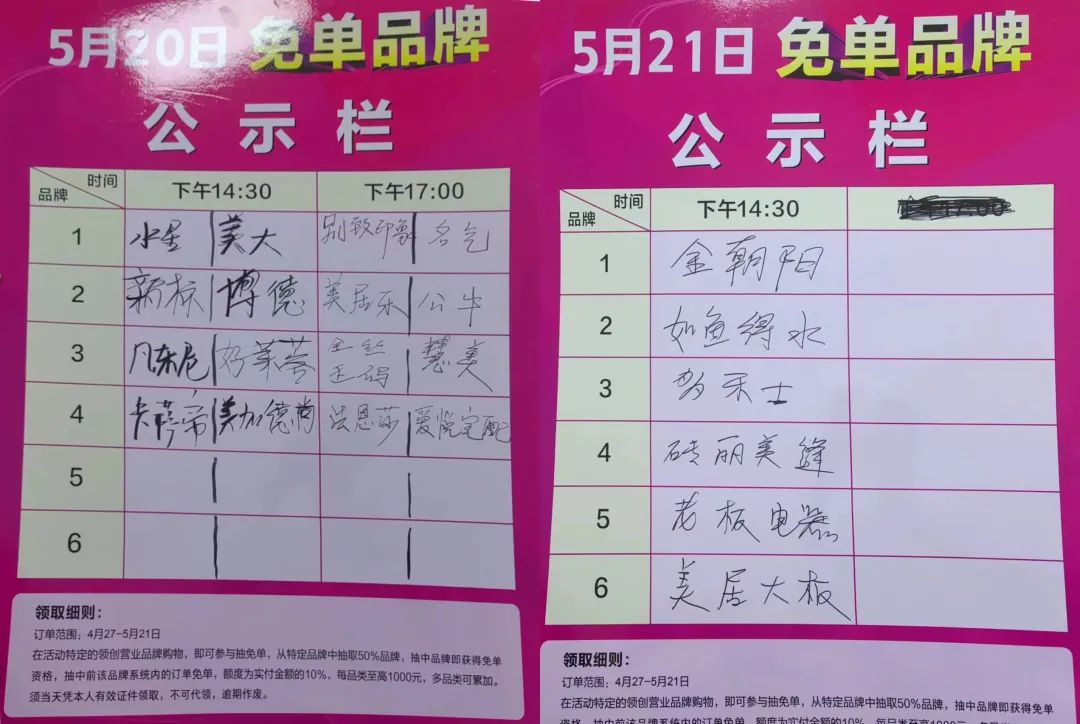 5月20日 免单品牌
公示栏
时间
品牌
下午14:30 下午17:00
1 水星 美大 别致印象 名气
2 新标 博德 美居乐 公牛
3 凡东尼 好莱荟 金丝玉玛 慧美
4 卡萨帝 美加德尚 法恩莎 爱悦宅配
5
6
领取细则：
订单范围：4月27-5月21日
在活动特定的领创营业品牌购物，即可参与抽免单，从特定品牌中抽取50%品牌，抽中品牌即获得免单
资格，抽中前该品牌系统内的订单免单，额度为实付金额的10%，每品类至高1000元，多品类可累加。
须当天凭本人有效证件领取，不可代领，逾期作废。
5月21日 免单品牌
公示栏
时间
品牌
下午14:30
1 金朝阳
2 如鱼得水
3 贺禾士
4 砖丽美缝
5 老板电器
6 美居大板
领取细则：
订单范围：4月27-5月21日
在活动特定的领创营业品牌购物，即可参与抽免单，从特定品牌中抽取50%品牌，抽中品牌即获得免单
资格，抽中前该品牌系统内的订单免单，额度为实付金额的10%，每品类至高1000元，